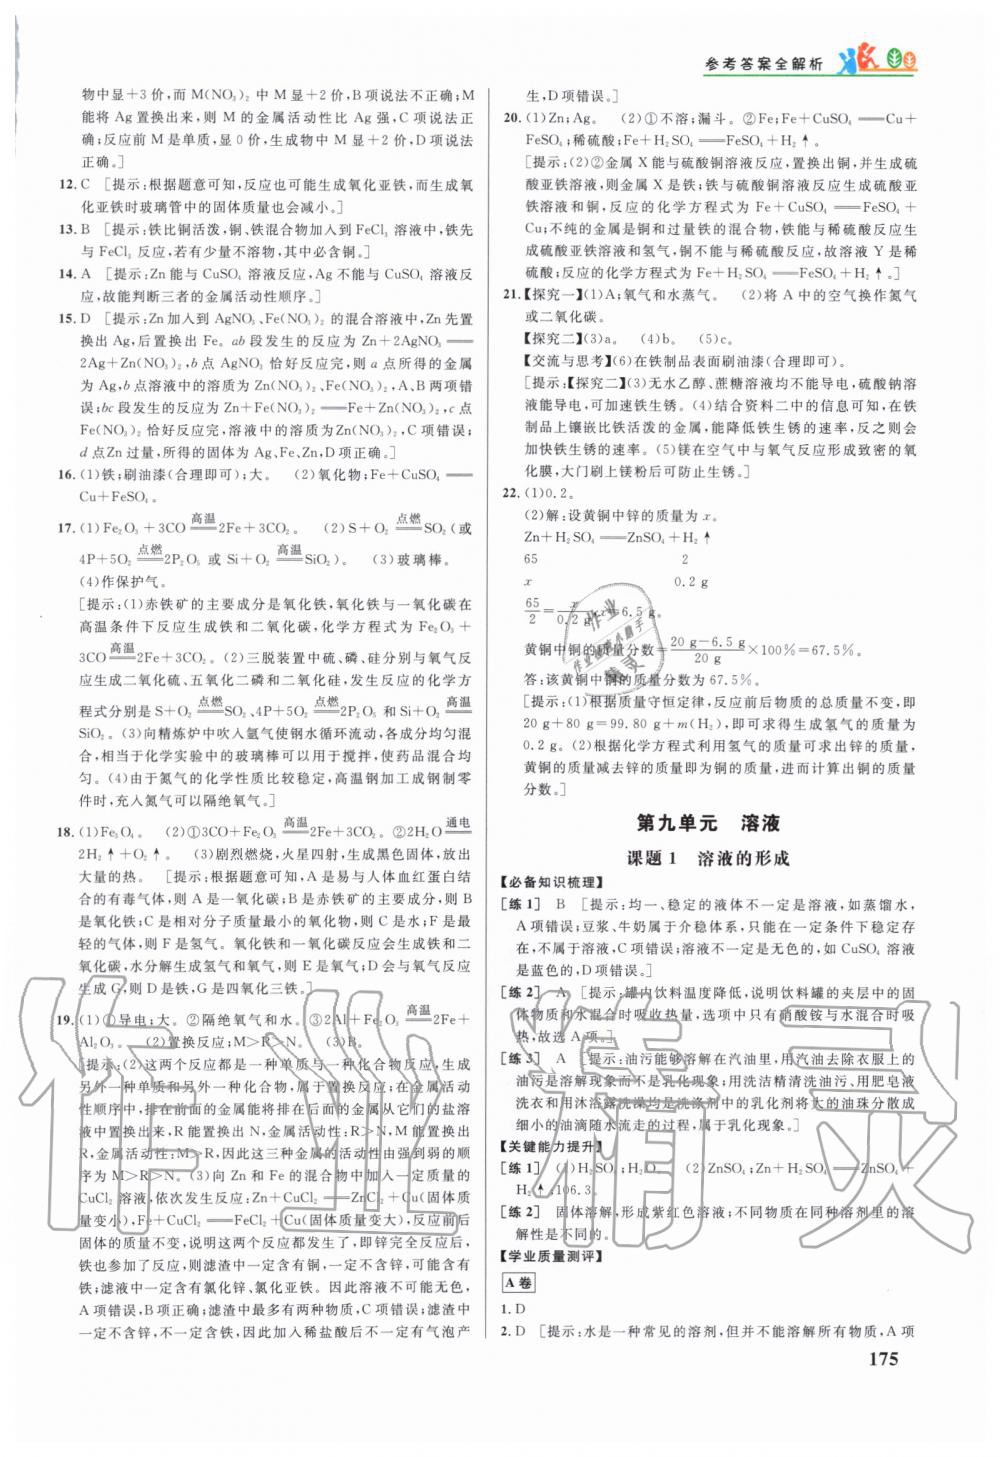 参考答案全解析
物中显+3价,而 M(NO₃)₂ 中 M 显+2价,B 项说法不正确;M
能将 Ag 置换出来,则 M 的金属活动性比 Ag 强,C 项说法正
确;反应前 M 是单质,显 0 价,生成物中 M 显+2价,D 项说法
正确。]
12. C [提示:根据题意可知,反应也可能生成氧化亚铁,而生成氧
化亚铁时玻璃管中的固体质量也会减小。]
13. B [提示:铁比铜活泼,铜、铁混合物加入到 FeCl₃ 溶液中,铁先
与 FeCl₃ 反应,若有少量不溶物,其中必含铜。]
14. A [提示:Zn 能与 CuSO₄ 溶液反应,Ag 不能与 CuSO₄ 溶液反
应,故能判断三者的金属活动性顺序。]
15. D [提示:Zn 加入到 AgNO₃、Fe(NO₃)₂ 的混合溶液中,Zn 先置
换出 Ag,后置换出 Fe。ab 段发生的反应为 Zn+2AgNO₃══
2Ag+Zn(NO₃)₂,b 点 AgNO₃ 恰好反应完,则 a 点所得的金属
为 Ag,b 点溶液中的溶质为 Zn(NO₃)₂、Fe(NO₃)₂,A、B 两项错
误;bc 段发生的反应为 Zn+Fe(NO₃)₂══Fe+Zn(NO₃)₂,c 点
Fe(NO₃)₂ 恰好反应完,溶液中的溶质为Zn(NO₃)₂,C 项错误;
d 点 Zn 过量,所得的固体为 Ag、Fe、Zn,D 项正确。]
16. (1)铁;刷油漆(合理即可);大。 (2)氧化物;Fe+CuSO₄══
Cu+FeSO₄。
17. (1)Fe₂O₃+3CO 高温══ 2Fe+3CO₂。 (2)S+O₂ 点燃══ SO₂(或
4P+5O₂ 点燃══ 2P₂O₅ 或 Si+O₂ 高温══ SiO₂)。 (3)玻璃棒。
(4)作保护气。
[提示:(1)赤铁矿的主要成分是氧化铁,氧化铁与一氧化碳在
高温条件下反应生成铁和二氧化碳,化学方程式为 Fe₂O₃+
3CO 高温══ 2Fe+3CO₂。(2)三脱装置中硫、磷、硅分别与氧气反
应生成二氧化硫、五氧化二磷和二氧化硅,发生反应的化学方
程式分别是 S+O₂ 点燃══ SO₂、4P+5O₂ 点燃══ 2P₂O₅ 和 Si+O₂ 高温══
SiO₂。(3)向精炼炉中吹入氩气使钢水循环流动,各成分均匀混
合,相当于化学实验中的玻璃棒可以用于搅拌,使药品混合均
匀。(4)由于氮气的化学性质比较稳定,高温钢加工成钢制零
件时,充入氮气可以隔绝氧气。]
18. (1)Fe₃O₄。 (2)①3CO+Fe₂O₃ 高温══ 2Fe+3CO₂。②2H₂O 通电══
2H₂↑+O₂↑。 (3)剧烈燃烧,火星四射,生成黑色固体,放出
大量的热。 [提示:根据题意可知,A 是易与人体血红蛋白结
合的有毒气体,则 A 是一氧化碳;B 是赤铁矿的主要成分,则 B
是氧化铁;C 是相对分子质量最小的氧化物,则 C 是水;F 是最
轻的气体,则 F 是氢气。氧化铁和一氧化碳反应会生成铁和二
氧化碳,水分解生成氢气和氧气,则 E 是氧气;D 会与氧气反应
生成 G,则 D 是铁,G 是四氧化三铁。]
19. (1)①导电;大。②隔绝氧气和水。③2Al+Fe₂O₃ 高温══ 2Fe+
Al₂O₃。 (2)置换反应;M>R>N。 (3)B。
[提示:(2)这两个反应都是一种单质与一种化合物反应,生成
另外一种单质和另外一种化合物,属于置换反应;在金属活动
性顺序中,排在前面的金属能将排在后面的金属从它们的盐溶
液中置换出来,R 能置换出 N,金属活动性:R>N,M 能置换出
R,金属活动性:M>R,这三种金属的活动性由强到弱的顺
序为 M>R>N。(3)向 Zn 和 Fe 的混合物中加入一定质量的
CuCl₂ 溶液,依次发生反应:Zn+CuCl₂══ZnCl₂+Cu(固体质
量变小),Fe+CuCl₂══FeCl₂+Cu(固体质量变大),反应前后
固体的质量不变,说明这两个反应一定发生,即锌完全反应,铁
也参加了反应,则滤渣中一定含有铜,一定不含锌,可能含有
铁;滤液中一定含有氯化锌、氯化亚铁。因此滤液不可能无色,
A 项错误,B 项正确;滤渣中最多有两种物质,C 项错误;滤渣中
一定不含锌,不一定含铁,因此加入稀盐酸后不一定有气泡产
生,D 项错误。]
20. (1)Zn;Ag。 (2)①不溶;漏斗。②Fe;Fe+CuSO₄══Cu+
FeSO₄;稀硫酸;Fe+H₂SO₄══FeSO₄+H₂↑。
[提示:(2)②金属 X 能与硫酸铜溶液反应,置换出铜,并生成硫
酸亚铁溶液,则金属 X 是铁;铁与硫酸铜溶液反应生成硫酸亚
铁溶液和铜,反应的化学方程式为 Fe+CuSO₄══FeSO₄+
Cu;不纯的金属是铜和过量铁的混合物,铁能与稀硫酸反应生
成硫酸亚铁溶液和氢气,铜不能与稀硫酸反应,故溶液 Y 是稀
硫酸;反应的化学方程式为 Fe+H₂SO₄══FeSO₄+H₂↑。]
21.【探究一】(1)A;氧气和水蒸气。 (2)将 A 中的空气换作氮气
或二氧化碳。
【探究二】(3)a。 (4)b。 (5)c。
【交流与思考】(6)在铁制品表面刷油漆(合理即可)。
[提示:【探究二】(3)无水乙醇、蔗糖溶液均不能导电,硫酸钠溶
液能导电,可加速铁生锈。(4)结合资料二中的信息可知,在铁
制品上镶嵌比铁活泼的金属,能降低铁生锈的速率,反之则会
加快铁生锈的速率。(5)镁在空气中与氧气反应形成致密的氧
化膜,大门刷上镁粉后可防止生锈。]
22. (1)0.2。
(2)解:设黄铜中锌的质量为 x。
Zn+H₂SO₄══ZnSO₄+H₂↑
65 2
x 0.2 g
65/2=x/0.2 g x=6.5 g。
黄铜中铜的质量分数=(20 g-6.5 g)/20 g×100%=67.5%。
答:该黄铜中铜的质量分数为 67.5%。
[提示:(1)根据质量守恒定律,反应前后物质的总质量不变,即
20 g+80 g=99.80 g+m(H₂),即可求得生成氢气的质量为
0.2 g。(2)根据化学方程式利用氢气的质量可求出锌的质量,
黄铜的质量减去锌的质量即为铜的质量,进而计算出铜的质量
分数。]
第九单元 溶液
课题 1 溶液的形成
【必备知识梳理】
[练 1] B [提示:均一、稳定的液体不一定是溶液,如蒸馏水,
A 项错误;豆浆、牛奶属于介稳体系,只能在一定条件下稳定存
在,不属于溶液,C 项错误;溶液不一定是无色的,如 CuSO₄ 溶液
是蓝色的,D 项错误。]
[练 2] A [提示:罐内饮料温度降低,说明饮料罐的夹层中的固
体物质和水混合时吸收热量,选项中只有硝酸铵与水混合时吸
热,故选 A 项。]
[练 3] A [提示:油污能够溶解在汽油里,用汽油去除衣服上的
油污是溶解现象而不是乳化现象;用洗洁精清洗油污、用肥皂液
洗衣和用沐浴露洗澡均是洗涤剂中的乳化剂将大的油珠分散成
细小的油滴随水流走的过程,属于乳化现象。]
【关键能力提升】
[练 1] (1)H₂SO₄;H₂O。 (2)ZnSO₄;Zn+H₂SO₄══ZnSO₄+
H₂↑;106.3。
[练 2] 固体溶解,形成紫红色溶液;不同物质在同种溶剂里的溶
解性是不同的。
【学业质量测评】
A 卷
1. D
2. D [提示:水是一种常见的溶剂,但并不能溶解所有物质,A 项
175
作业精灵